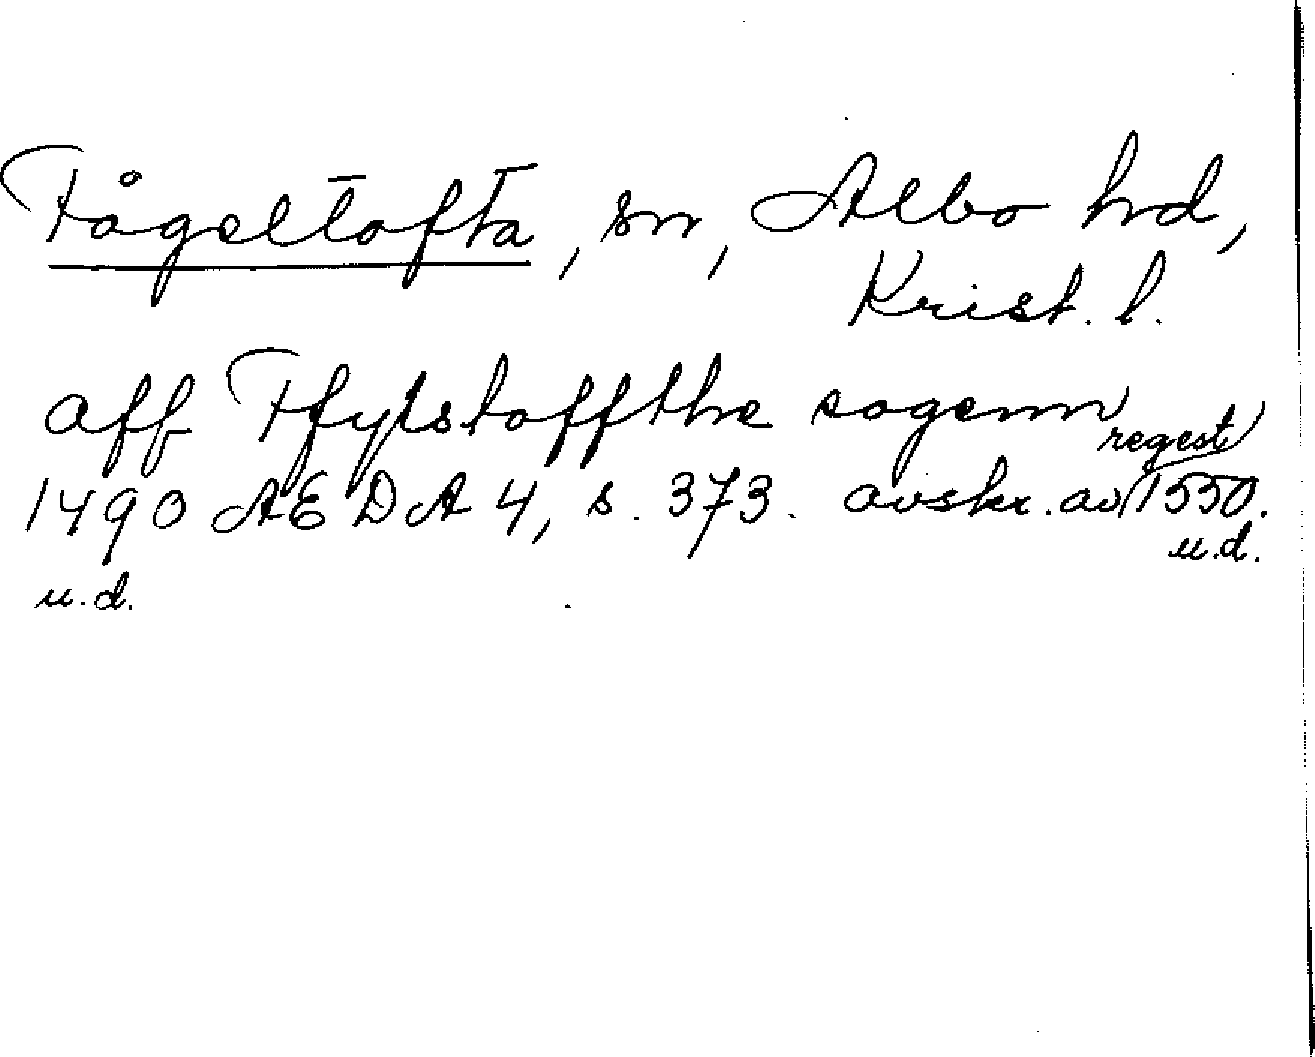 Fågeltofta, sn, Albo hd,
Krist. l.
aff Ffylstoffthe sogenn
1490 AEDA 4, s. 373. avskr. av regest 1550.
u.d.
u.d.